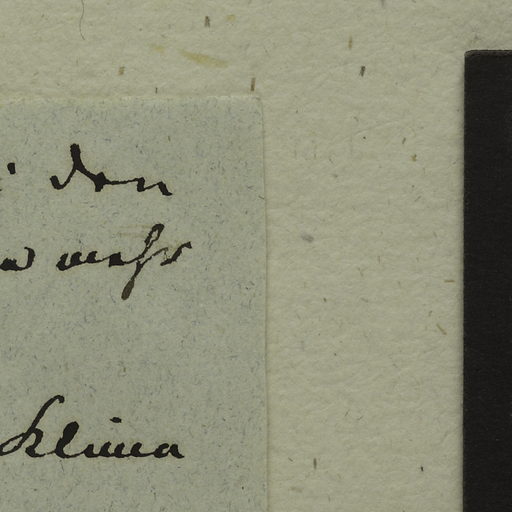 den
mehr
Klima